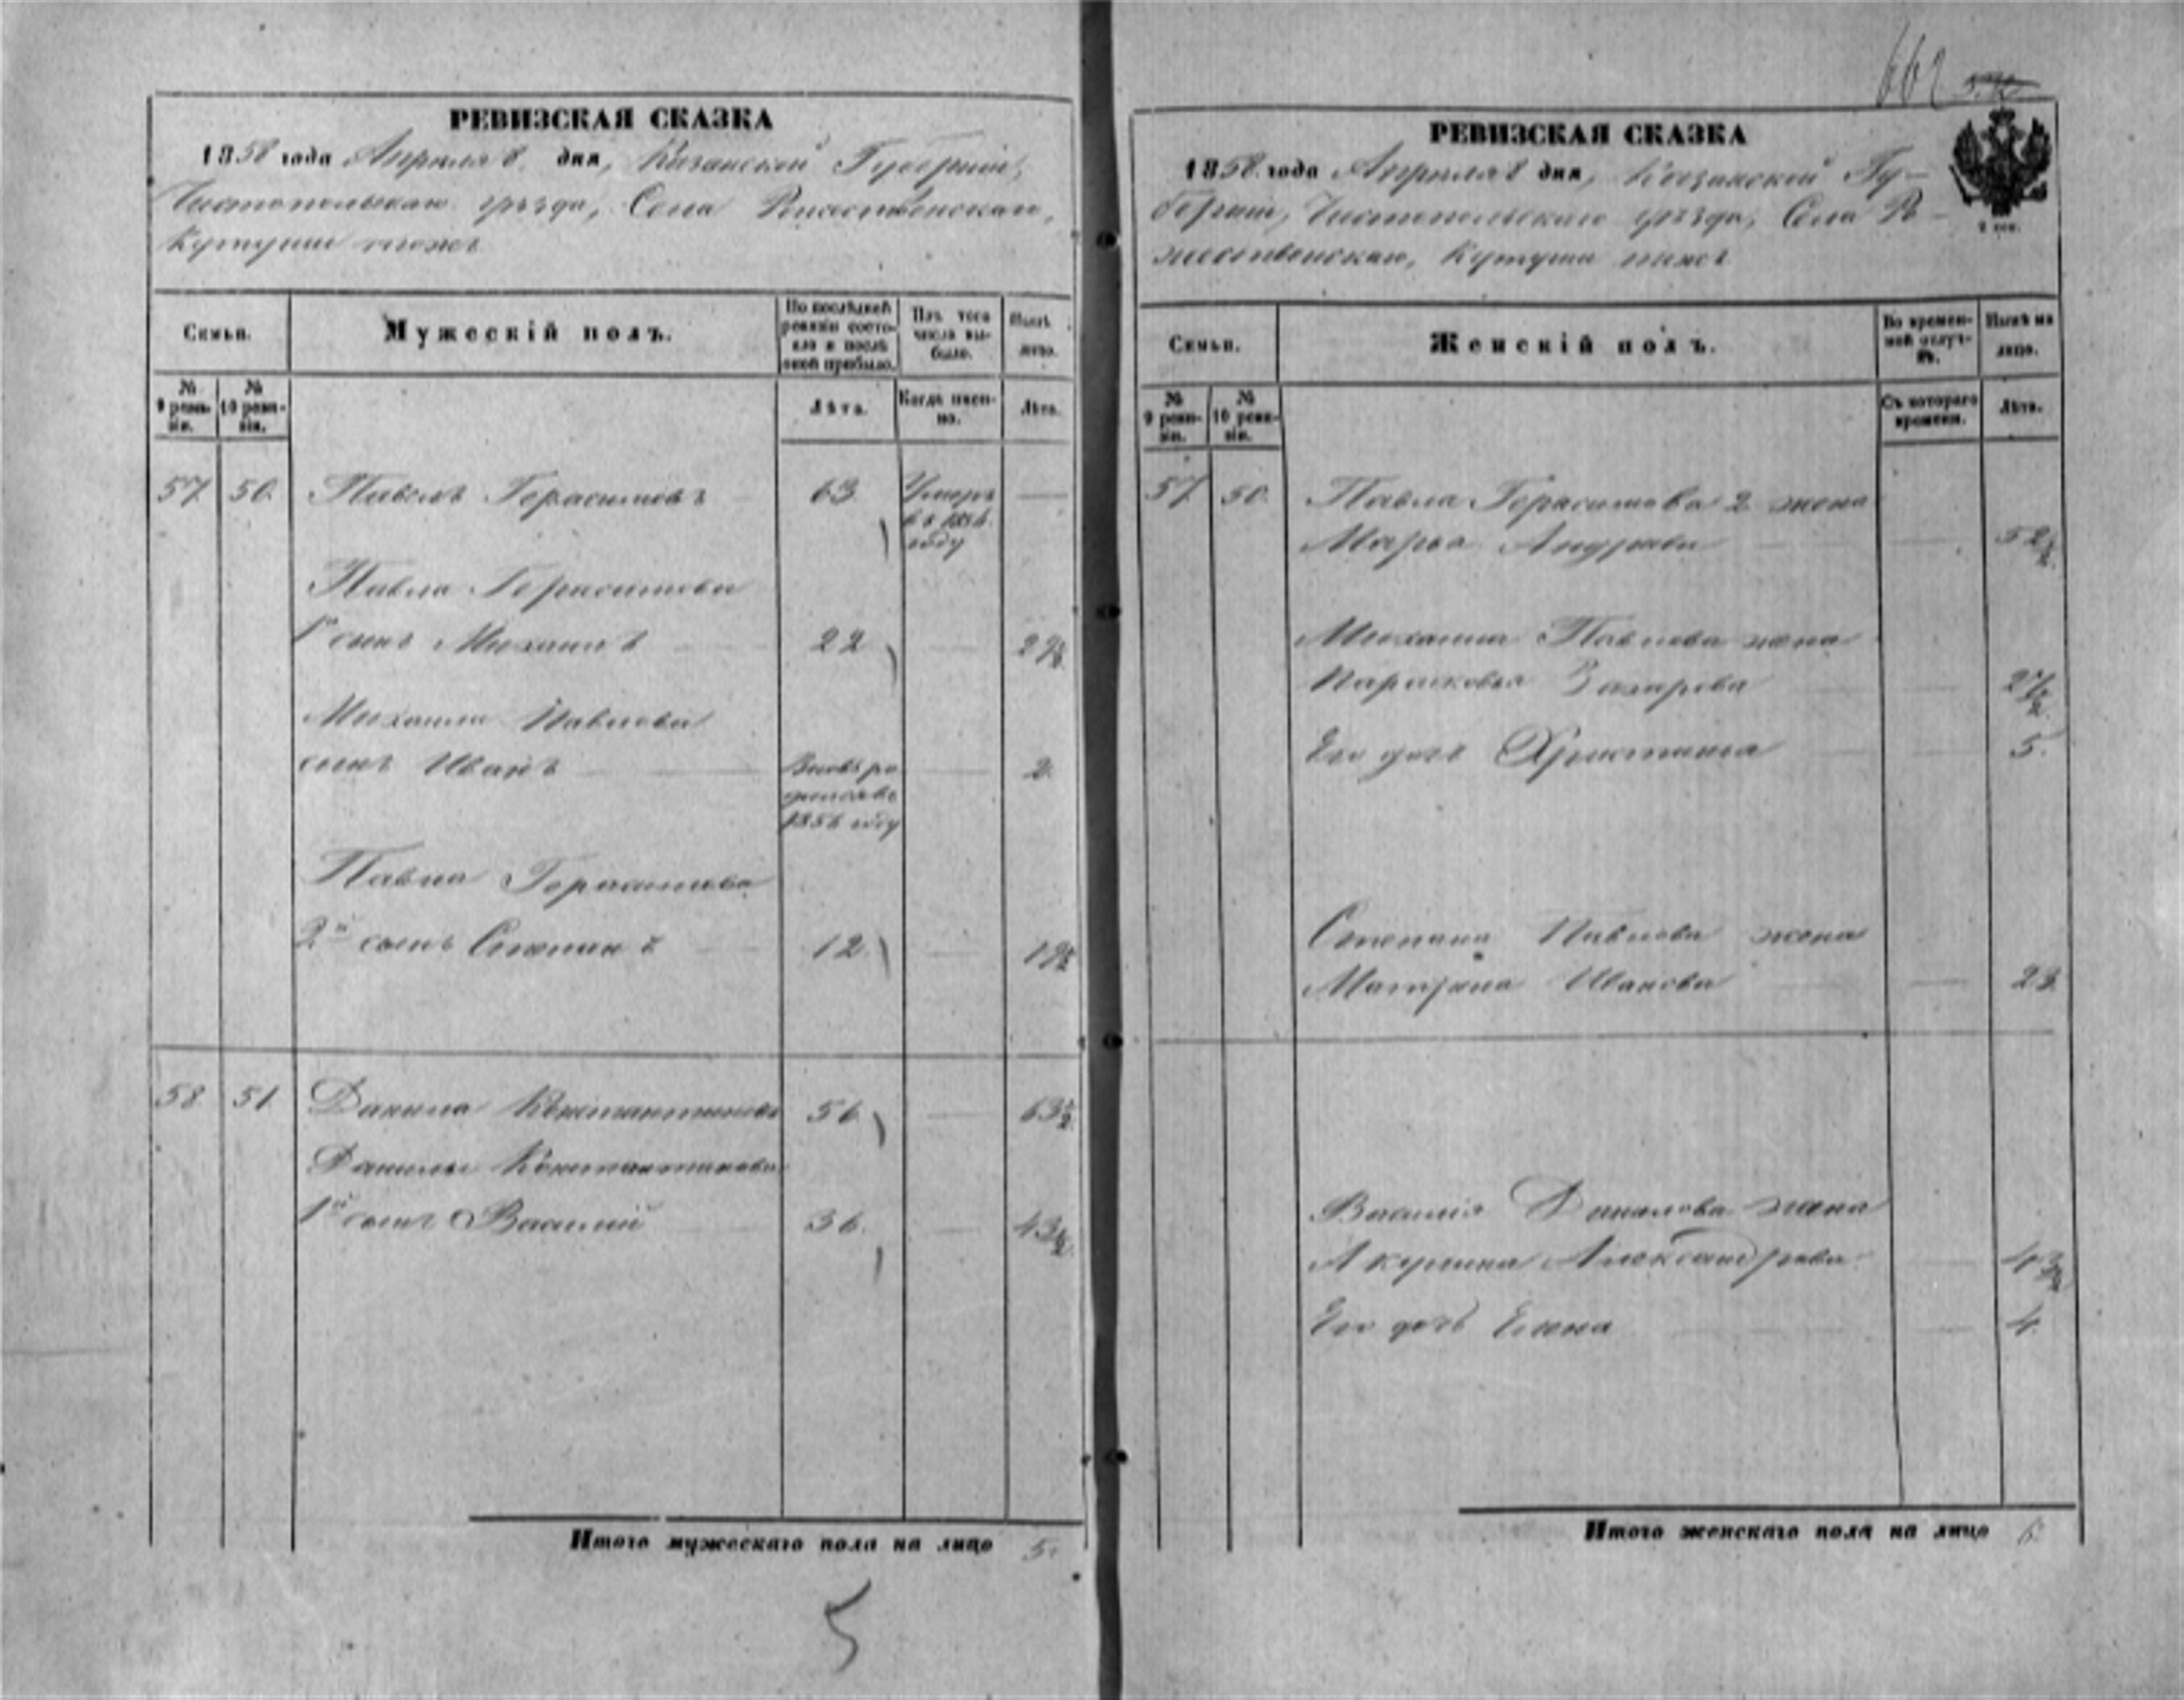 662
РЕВИЗСКАЯ СКАЗКА
1858 года Апреля 8 дня, Казанской Губернии,
Чистопольскаго уѣзда, Села Рожественскаго,
Кутуши тожъ
Семьи.
Мужескій полъ.
По послѣдней ревизіи состояло и послѣ оной прибыло.
Изъ того числа выбыло.
Нынѣ на лицо.
№ 9 ревизіи.
№ 10 ревизіи.
Лѣта.
Когда именно.
Лѣта.
57. 50. Павелъ Герасимовъ 63 Умеръ
въ 1856.
году
Павла Герасимова
1й сынъ Михаилъ 22 29½
Михаила Павлова
сынъ Иванъ Вновь ро 2.
дился въ
1856 году
Павла Герасимова
2й сынъ Степанъ 12. 19½
58 51. Данила Константиновъ 56. 63½
Данилы Константинова
1й сынъ Василий 36. 43½
Итого мужескаго пола на лицо 5.
5
РЕВИЗСКАЯ СКАЗКА
1858. года Апреля 8 дня, Казанской Гу-
берніи, Чистопольскаго уѣзда, Села Ро-
жественскаго, Кутуши тожъ
Семьи.
Женскій полъ.
Во временной отлучкѣ.
Нынѣ на лицо.
№ 9 ревизіи.
№ 10 ревизіи.
Съ котораго времени.
Лѣта.
57. 50. Павла Герасимова 2 жена
Марья Андреева 52½
Михаила Павлова жена
Парасковья Захарова 27½
Его дочь Христинья 5.
Степана Павлова жена
Матрена Иванова 23
Василія Данилова жена
Акулина Александрова 43½
Его дочь Елена 4.
Итого женскаго пола на лицо 6.